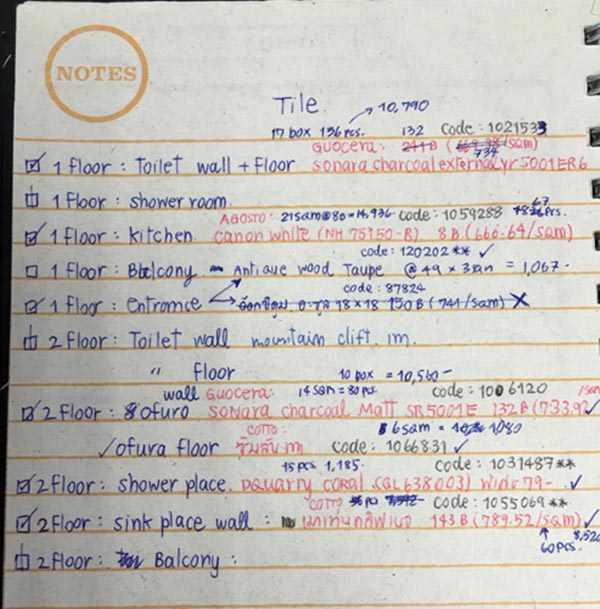 NOTES
Tile. → 10,790
17 box x 136 pcs. 132 Code : 1021533
☑ 1 floor : Toilet wall + floor GUOCERA: 241 B (669.98/sqm) 734 sonara charcoal external yr 5001ER6
1 floor : shower room.
AGOSTO : 21sqm@80 = 14,936 code : 1059288 67 pcs.
☑ 1 floor : kitchen canon white (NH 75150-B) 8B. (666.64/sqm)
code : 120202** ✓
☐ 1 floor : Balcony Antique wood Taupe @ 49 x 3an = 1,067.
code : 87824
☑ 1 floor : entrance 18 x 18 150 B (741/sqm) X
2 floor : Toilet wall mountain clift. 1m.
" floor 10 box = 10,560-
wall GUOCERA: 14 sqm = 80 pcs. code : 1006120
☑ 2 floor : ofuro sonara charcoal Matt SR5001E 132 B (733.92 ✓
COTTO : 6 sqm = 1,080
✓ ofura floor code : 1066831 ✓
15 pcs. 1,185. code : 1031487**
☑ 2 floor : shower place. Dquarry coral (GL638003) 79- ✓
COTTO code : 1055069**
☑ 2 floor : sink place wall : 143 B (789.52/sqm) ✓
↑ 60 pcs. 8,520
2 floor : Balcony :